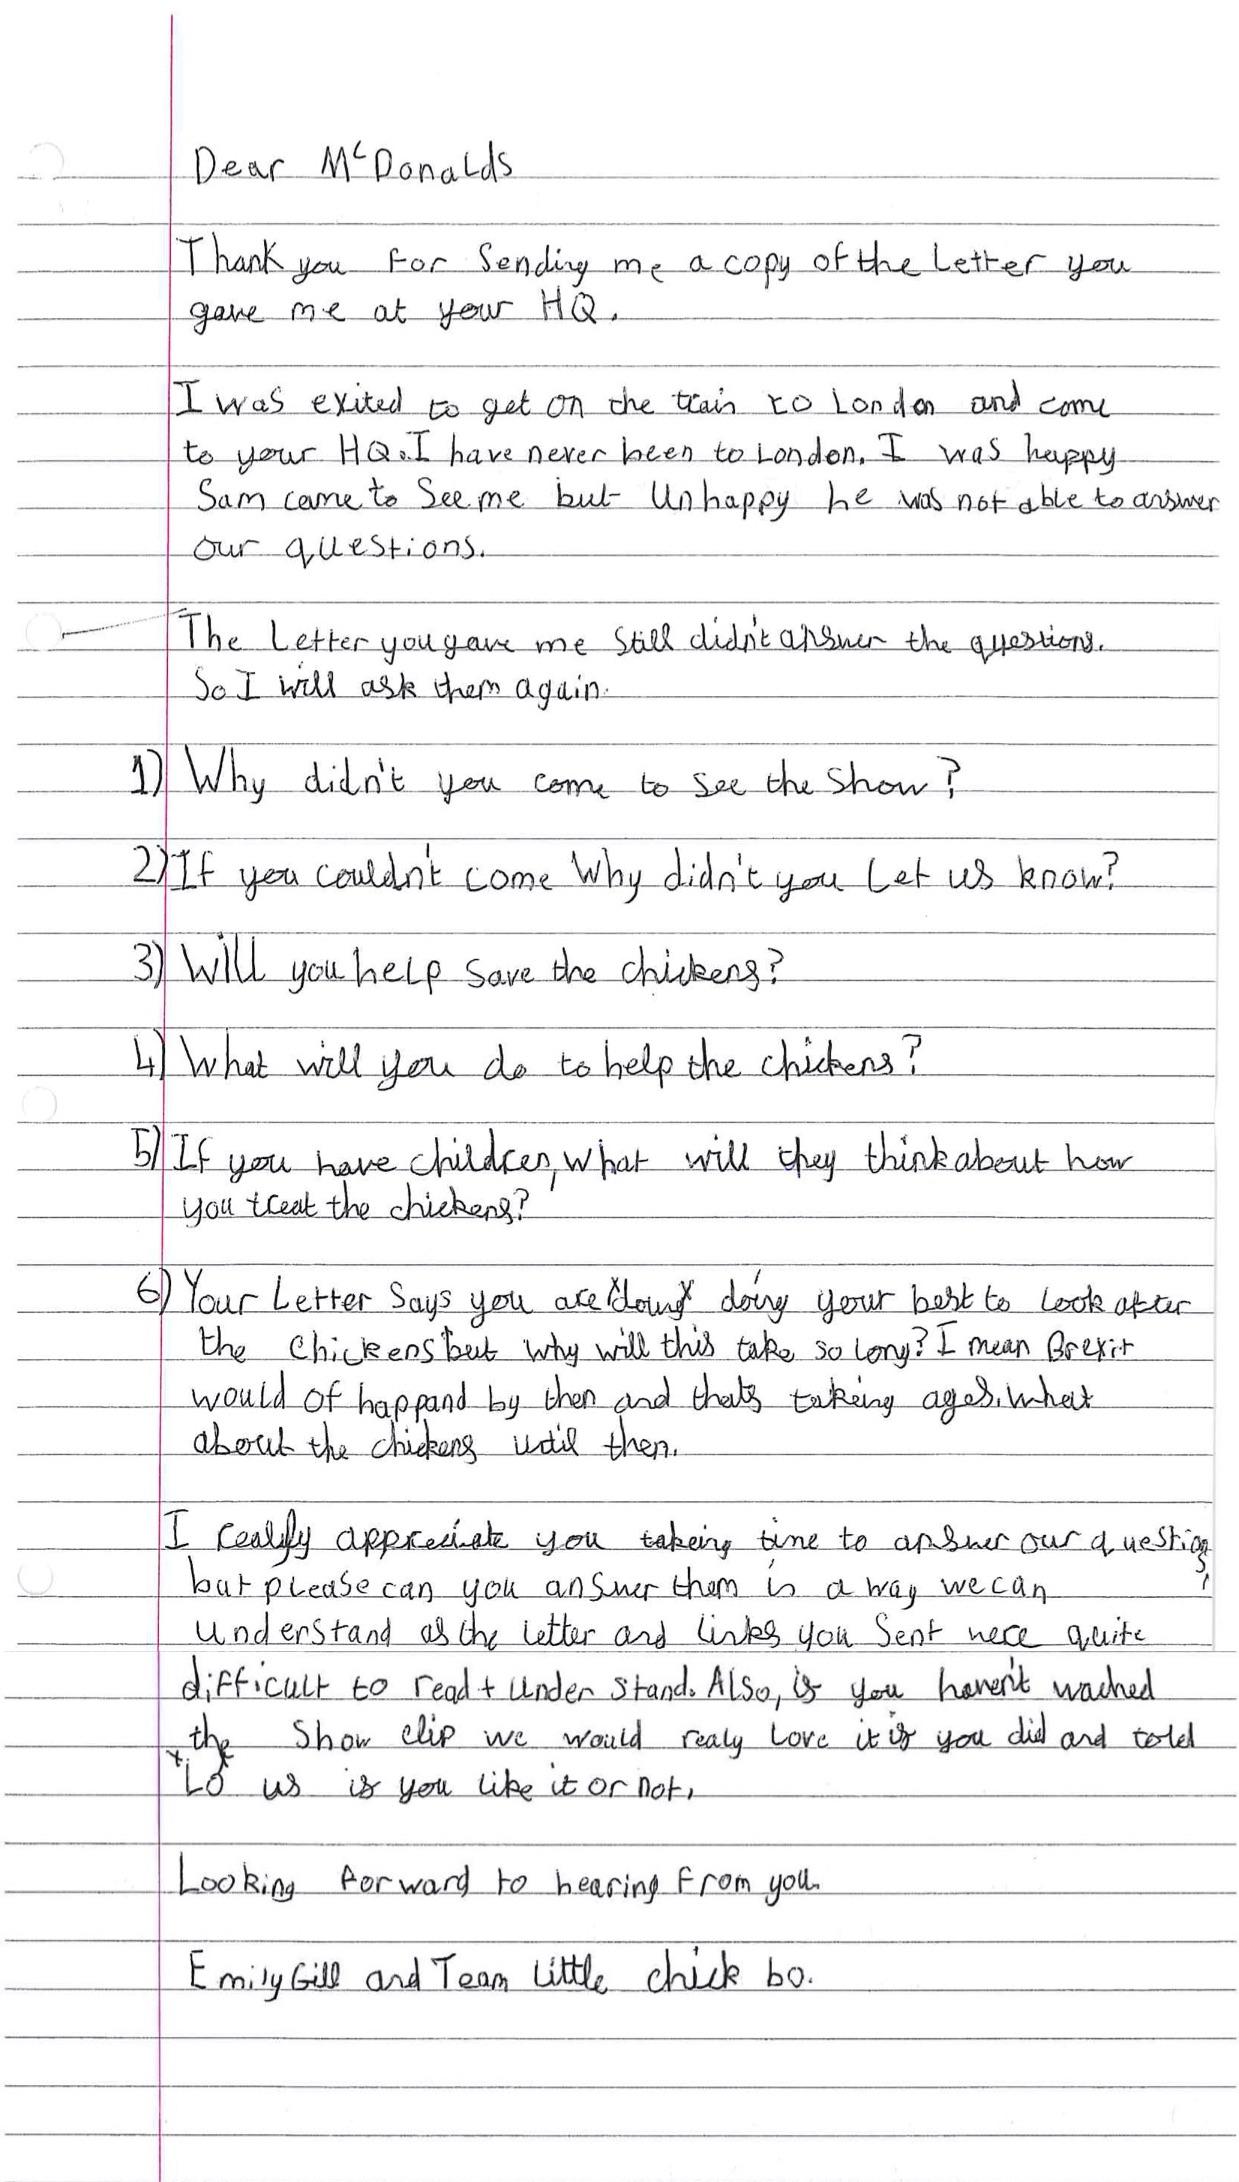 Dear McDonalds
Thank you for Sending me a copy of the Letter you
gave me at your HQ.
I was exited to get on the train to London and come
to your HQ. I have never been to London. I was happy
Sam came to See me but Unhappy he was not able to answer
our questions.
The Letter you gave me Still didn't answer the questions.
So I will ask them again.
1) Why didn't you come to see the Show?
2) If you couldn't come Why didn't you Let us know?
3) Will you help save the chickens?
4) What will you do to help the chickens?
5) If you have children, what will they think about how
you treat the chickens?
6) Your Letter Says you are doing your best to Look after
the chickens but why will this take so long? I mean Brexit
would of happand by then and thats takeing ages. What
about the chickens until then.
I really appreciate you takeing time to answer our questions,
but please can you answer them in a way we can
understand as the letter and links you Sent were quite
difficult to read + under stand. Also, if you haven't wached
the Show clip we would realy Love it if you did and told
us if you like it or not.
Looking forward to hearing from you.
Emily Gill and Team Little chick bo.